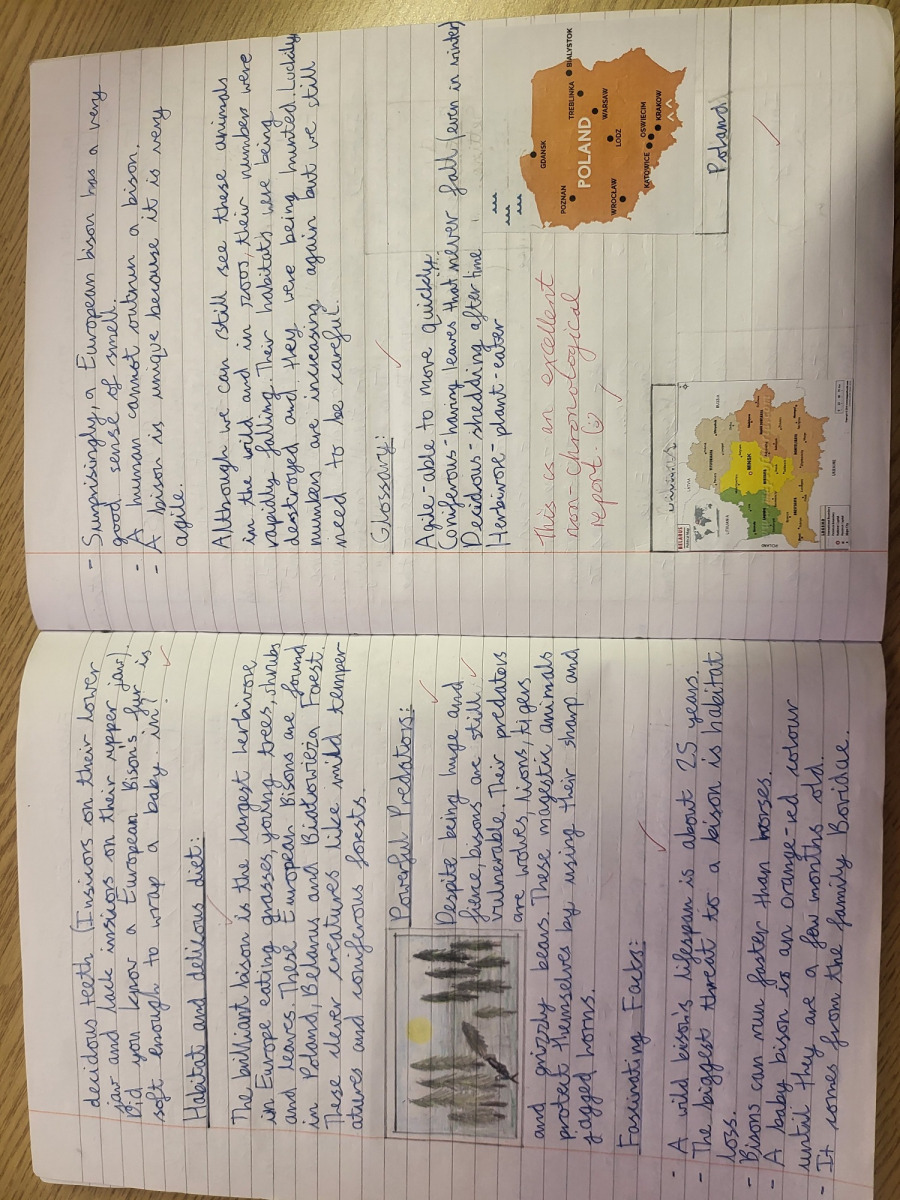 decidous teeth (Insisors on their lower
jaw and lack insisors on their upper jaw).
Did you know a European Bison's fur is
soft enough to wrap a baby in?
Habitat and delicous diet:
The brilliant bison is the largest herbivore
in Europe eating grasses, young trees, shrubs
and leaves. These European Bisons are found
in Poland, Belarus and Biatowieza Forest.
These clever creatures like mild temper-
atures and coniferous forests.
Powerful Predators:
Despite being huge and
fierce, bisons are still
vulnerable. Their predators
are wolves, lions, tigers
and grizzly bears. These magestic animals
protect themselves by using their sharp and
jagged horns.
Fascinating Facts:
- A wild bison's lifespan is about 25 years.
- The biggest threat to a bison is habitat
loss.
- Bisons can run faster than horses.
- A baby bison is an orange-red colour
until they are a few months old.
- It comes from the family Bovidue.
- Surprisingly, a European bison has a very
good sense of smell.
- A human cannot outrun a bison.
- A bison is unique because it is very
agile.
Although we can still see these animals
in the wild and in zoos, their numbers were
rapidly falling. Their habitats were being
destroyed and they were being hunted. Luckily
numbers are increasing again but we still
need to be careful.
Glossary:
Agile-able to move quickly.
Coniferous-having leaves that never fall (even in winter)
Decidous-shedding after time
Herbivor-plant-eater
This is an excellent
non-chronological
report.
GDANSK
BIALYSTOK
TREBLINKA
POZNAN
POLAND
WARSAW
LODZ
WROCLAW
OSWIECIM
KATOWICE
KRAKOW
Poland
BELARUS
MINSK
RUSSIA
LATVIA
LITHUANIA
POLAND
UKRAINE